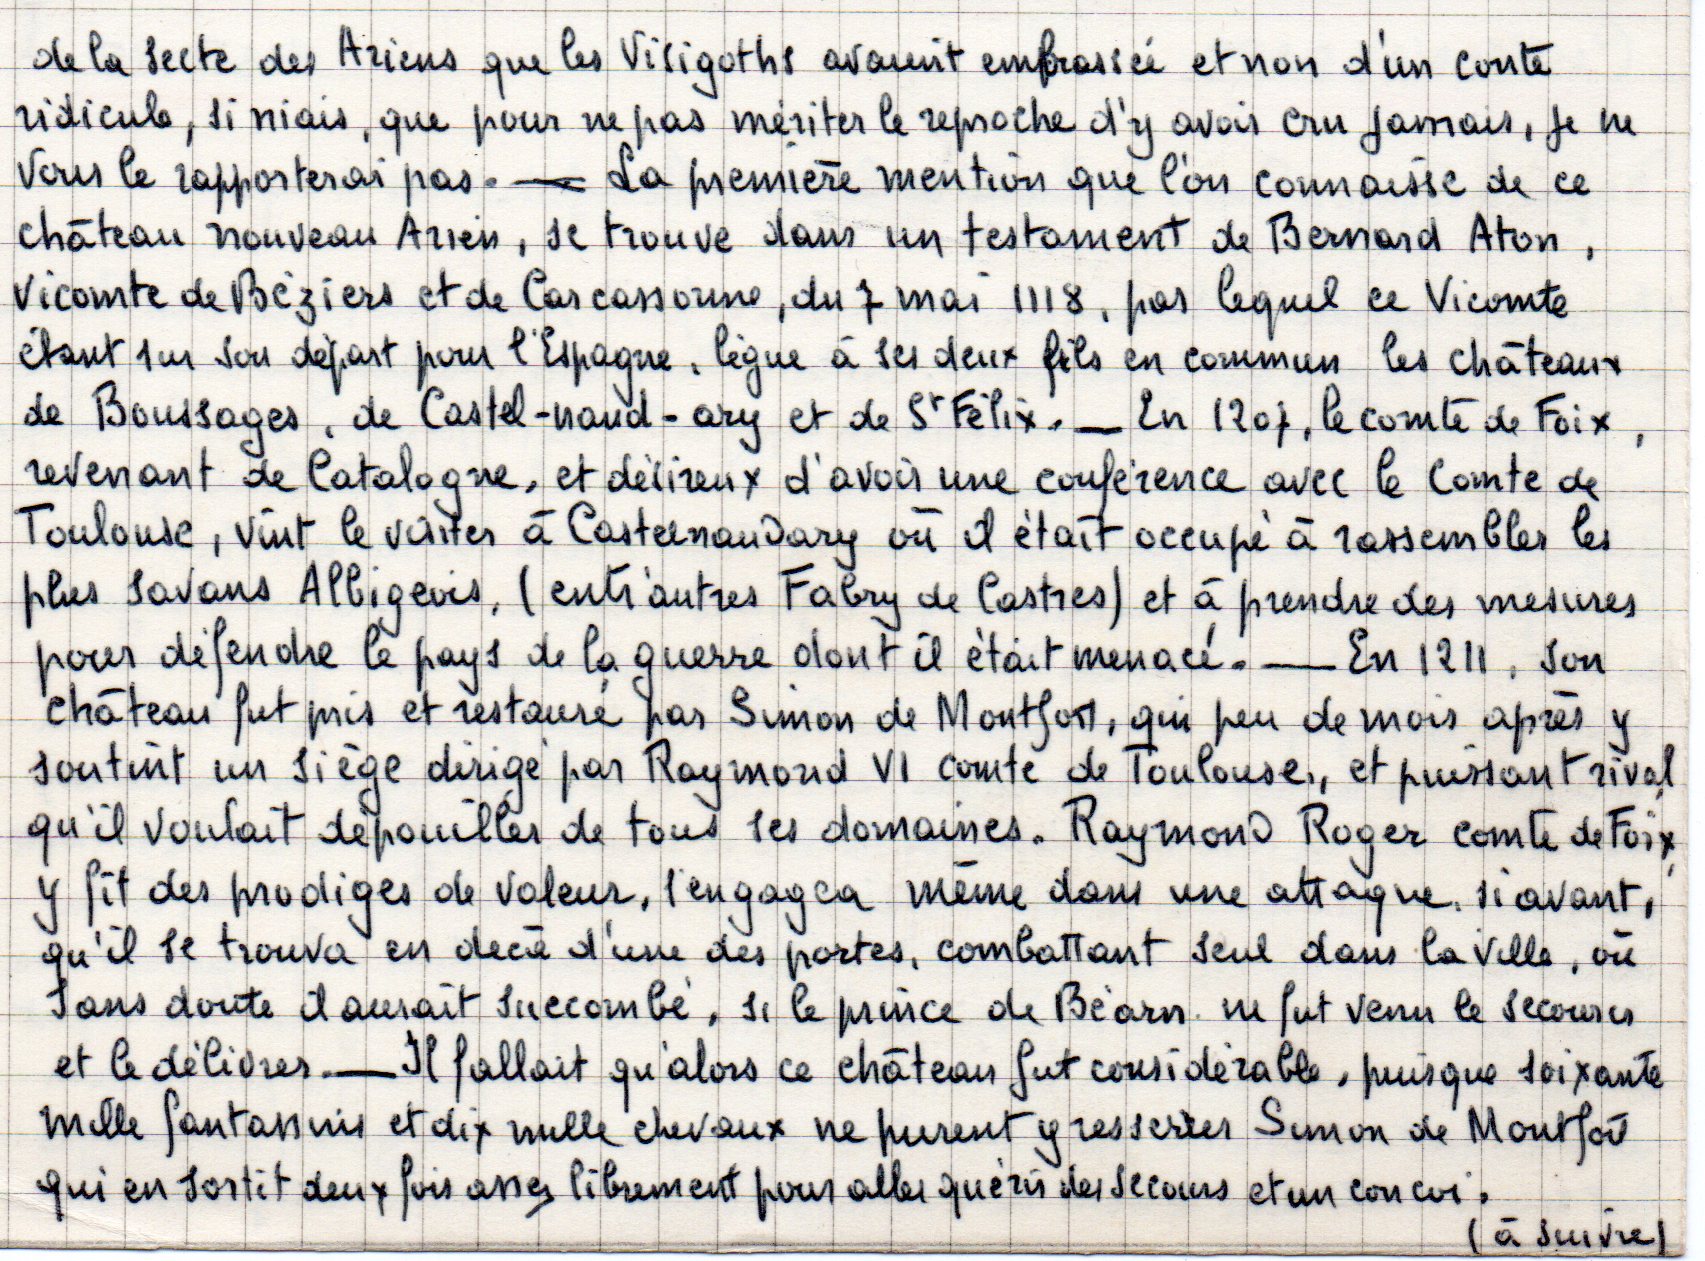 de la secte des Ariens que les Visigoths avaient embrassée et non d'un conte
ridicule, si niais, que pour ne pas mériter le reproche d'y avoir cru jamais, je ne
vous le rapporterai pas. — La première mention que l'on connaisse de ce
château nouveau Arien, se trouve dans un testament de Bernard Aton,
Vicomte de Béziers et de Carcassonne, du 7 mai 1118, par lequel ce Vicomte
étant sur son départ pour l'Espagne, lègue à ses deux fils en commun les châteaux
de Boussages, de Castel-naud-ary et de St Félix. — En 1207, le comte de Foix,
revenant de Catalogne, et désireux d'avoir une conférence avec le Comte de
Toulouse, vint le visiter à Castelnaudary où il était occupé à rassembler les
plus savans Albigeois, (entr'autres Fabry de Castres) et à prendre des mesures
pour défendre le pays de la guerre dont il était menacé. — En 1211, son
château fut pris et restauré par Simon de Montfort, qui peu de mois après y
soutint un siège dirigé par Raymond VI comte de Toulouse, et puissant rival
qu'il voulait dépouiller de tous ses domaines. Raymond Roger comte de Foix,
y fit des prodiges de valeur, s'engagea même dans une attaque, si avant,
qu'il se trouva en decà d'une des portes, combattant seul dans la ville, où
sans doute il aurait succombé, si le prince de Béarn ne fut venu le secourir
et le délivrer. — Il fallait qu'alors ce château fut considérable, puisque soixante
mille fantassins et dix mille chevaux ne purent y resserrer Simon de Montfort
qui en sortit deux fois assez librement pour aller quérir des secours et un concoi.
(à suivre)